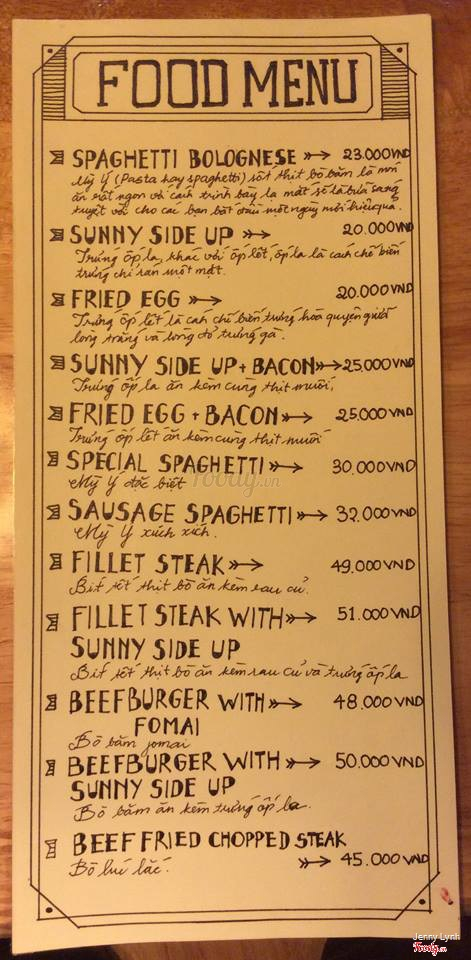 FOOD MENU
SPAGHETTI BOLOGNESE 23.000VND
Mỳ Ý (Pasta hay spaghetti) sốt thịt bò băm là món
ăn rất ngon và cách trình bày lạ mắt sẽ là bữa sáng
tuyệt vời cho các bạn bắt đầu một ngày mới hiệu quả.
SUNNY SIDE UP 20.000VND
Trứng ốp la, khác với ốp lết, ốp la là cách chế biến
trứng chỉ rán một mặt.
FRIED EGG 20.000VND
Trứng ốp lết là cách chế biến trứng hoà quyện giữa
lòng trắng và lòng đỏ trứng gà.
SUNNY SIDE UP + BACON 25,000VND
Trứng ốp la ăn kèm cùng thịt muối,
FRIED EGG + BACON 25.000VND
Trứng ốp lết ăn kèm cùng thịt muối
SPECIAL SPAGHETTI 30.000VND
Mỳ Ý đặc biệt
foody.vn
SAUSAGE SPAGHETTI 32.000VND
Mỳ Ý xúch xích.
FILLET STEAK 49.000VND
Bít tết thịt bò ăn kèm rau củ.
FILLET STEAK WITH 51.000VND
SUNNY SIDE UP
Bít tết thịt bò ăn kèm rau củ và trứng ốp la
BEEFBURGER WITH 48.000VND
FOMAI
Bò băm fomai
BEEFBURGER WITH 50.000VND
SUNNY SIDE UP
Bò băm ăn kèm trứng ốp la.
BEEF FRIED CHOPPED STEAK
45.000VND
Bò lúc lắc.
Jenny Lynh
Foody.vn